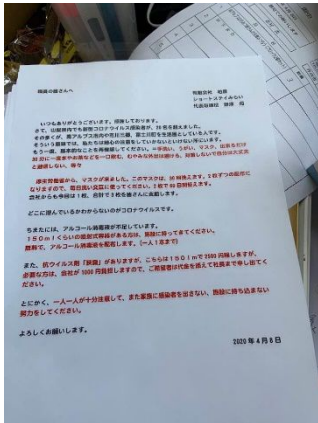 職員の皆さんへ
有限会社 柏原
ショートステイみらい
いつもありがとうございます。感謝しております。
さて、山梨県内でも新型コロナウイルス感染者が、20名を超えました。
その多くが、南アルプス市内や市川三郷、富士川町を生活圏としている人です。
そういう意味では、私たちは細心の注意をしていかないといけない所にいます。
もう一度、基本的なことを再確認してください。＝手洗い、うがい、マスク、出来るだけ
30分に一度水やお茶などを一口飲む、むやみな外出は避ける、
と接近しない、等々
厚生労働省から、マスクが来ました。このマスクは、20回洗えます。1わずつの配布に
なりますので、毎日洗い交互に使ってください。2枚で40日間使えます。
当社からも今回は1枚、合計で3枚を皆さんに支給します。
どこに潜んでいるかわからないのがコロナウイルスです。
ちまたには、アルコール消毒液が不足しています。
150mlくらいの噴射式容器がある方は、施設に持ってきてください。
無料で、アルコール消毒液を配布します。（一人1本まで）
また、抗ウイルス剤「鉄扇」がありますが、こちらは150lmで2500円程しますが、
必要な方は、会社が1000円負担しますので、ご希望者は代金を添えて社長まで申し出てく
ださい。
とにかく、一人一人が十分注意して、また家族に感染者を出さない、施設に持ち込まない
努力をしてください。
よろしくお願いします。
2020年4月8日